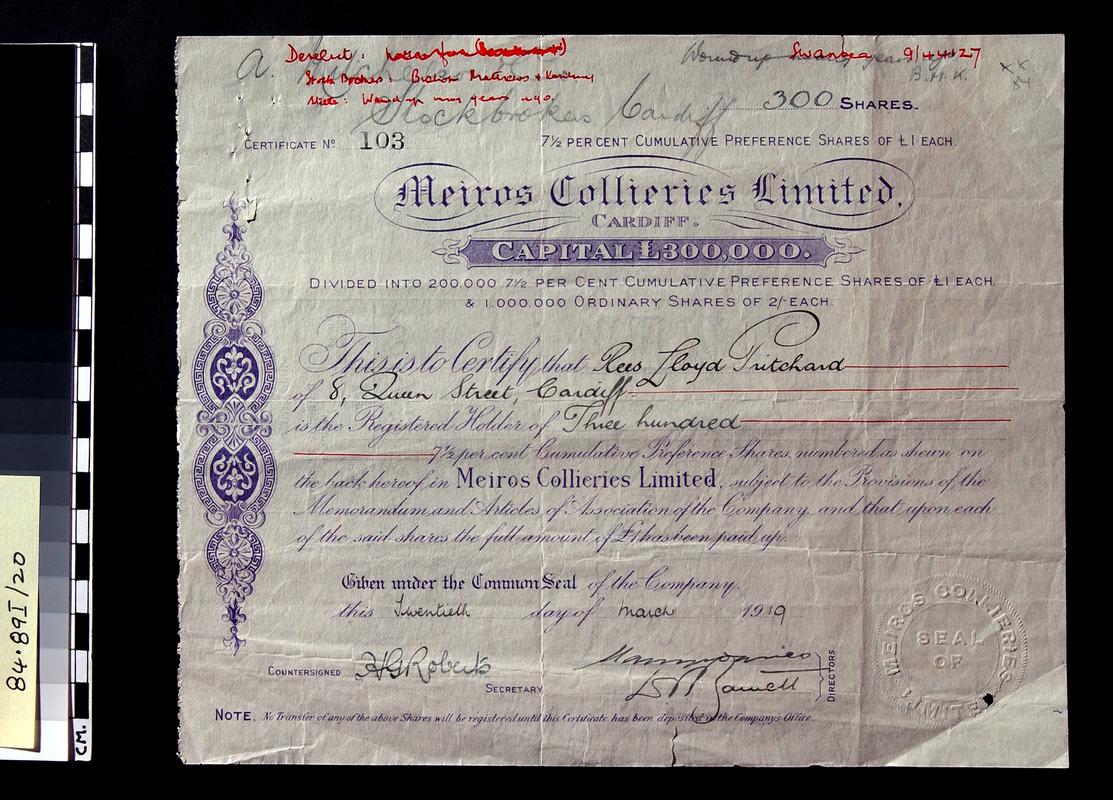 Derelict:
Swansea 9/4427
B.M.K.
Stockbrokers Cardiff
300 SHARES.
CERTIFICATE No 103
7½ PER CENT CUMULATIVE PREFERENCE SHARES OF £1 EACH.
Meiros Collieries Limited,
CARDIFF.
CAPITAL £300,000.
DIVIDED INTO 200.000 7½ PER CENT CUMULATIVE PREFERENCE SHARES OF £1 EACH.
& 1.000.000 ORDINARY SHARES OF 2/- EACH.
This is to Certify that Rees Lloyd Pritchard
of 8, Queen Street, Cardiff
is the Registered Holder of Three hundred
7½ per cent Cumulative Preference Shares, numbered as shewn on
the back hereof in Meiros Collieries Limited, subject to the Provisions of the
Memorandum and Articles of Association of the Company, and that upon each
of the said shares the full amount of £1 has been paid up.
Given under the Common Seal of the Company,
this Twentieth day of March 1919
COUNTERSIGNED HG Roberts
SECRETARY
DIRECTORS
MEIROS COLLIERIES LIMITED
SEAL OF
NOTE, No Transfer of any of the above Shares will be registered until this Certificate has been deposited in the Company's Office.
84.89I/20
CM.